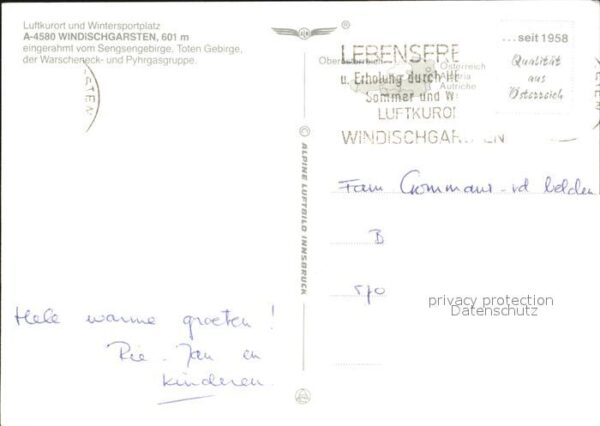 Luftkurort und Wintersportplatz
A-4580 WINDISCHGARSTEN, 601 m
eingerahmt vom Sengsengebirge, Toten Gebirge,
der Warscheneck- und Pyhrgasgruppe.
®
...seit 1958
Qualität
aus
Österreich
LEBENSFRE
u. Erholung durch
Sommer und W
LUFTKUROR
WINDISCHGARSTEN
Österreich
Austria
Autriche
STEN
© ALPINE LUFTBILD INNSBRUCK
Fam.
B
privacy protection
Datenschutz
Hele warme groeten!
Rie - Jan en
kinderen.